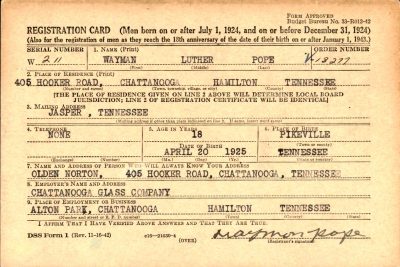 Form Approved
Budget Bureau No. 33-R012-42
REGISTRATION CARD (Men born on or after July 1, 1924, and on or before December 31, 1924)
(Also for the registration of men as they reach the 18th anniversary of the date of their birth on or after January 1, 1943.)
SERIAL NUMBER 1. NAME (Print) ORDER NUMBER
W 211 WAYMAN LUTHER POPE 13277
(First) (Middle) (Last)
2. PLACE OF RESIDENCE (Print)
405 HOOKER ROAD, CHATTANOOGA HAMILTON TENNESSEE
(Number and street) (Town, township, village, or city) (County) (State)
[THE PLACE OF RESIDENCE GIVEN ON LINE 2 ABOVE WILL DETERMINE LOCAL BOARD
JURISDICTION; LINE 2 OF REGISTRATION CERTIFICATE WILL BE IDENTICAL]
3. MAILING ADDRESS
JASPER, TENNESSEE
[Mailing address if other than place indicated on line 2. If same, insert word same]
4. TELEPHONE 5. AGE IN YEARS 6. PLACE OF BIRTH
NONE 18 PIKEVILLE
DATE OF BIRTH (Town or county)
APRIL 20 1925 TENNESSEE
(Exchange) (Number) (Mo.) (Day) (Yr.) (State or country)
7. NAME AND ADDRESS OF PERSON WHO WILL ALWAYS KNOW YOUR ADDRESS
OLDEN NORTON, 405 HOOKER ROAD, CHATTANOOGA, TENNESSEE
8. EMPLOYER'S NAME AND ADDRESS
CHATTANOOGA GLASS COMPANY
9. PLACE OF EMPLOYMENT OR BUSINESS
ALTON PARK, CHATTANOOGA HAMILTON TENNESSEE
(Number and street or R. F. D. number) (Town) (County) (State)
I AFFIRM THAT I HAVE VERIFIED ABOVE ANSWERS AND THAT THEY ARE TRUE.
DSS Form 1 (Rev. 11-16-42) 16-21630-4 Waymon Pope
(OVER) (Registrant's signature)